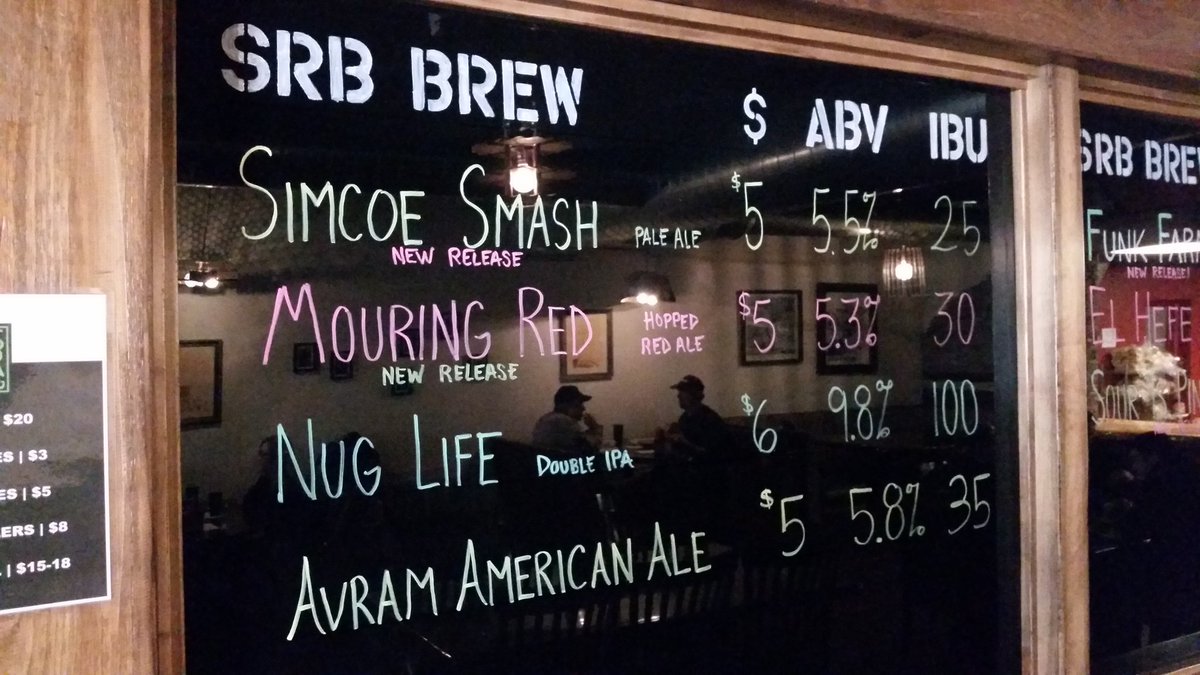 SRB BREW $ ABV IBU
SIMCOE SMASH PALE ALE $5 5.5% 25
NEW RELEASE
MOURING RED HOPPED RED ALE $5 5.3% 30
NEW RELEASE
NUG LIFE DOUBLE IPA $6 9.8% 100
AVRAM AMERICAN ALE $5 5.8% 35
SRB BRE
FUNK FAR
NEW RELEASE!
EL HEFE
SOUR
$20
ES | $3
ES | $5
ERS | $8
| $15-18